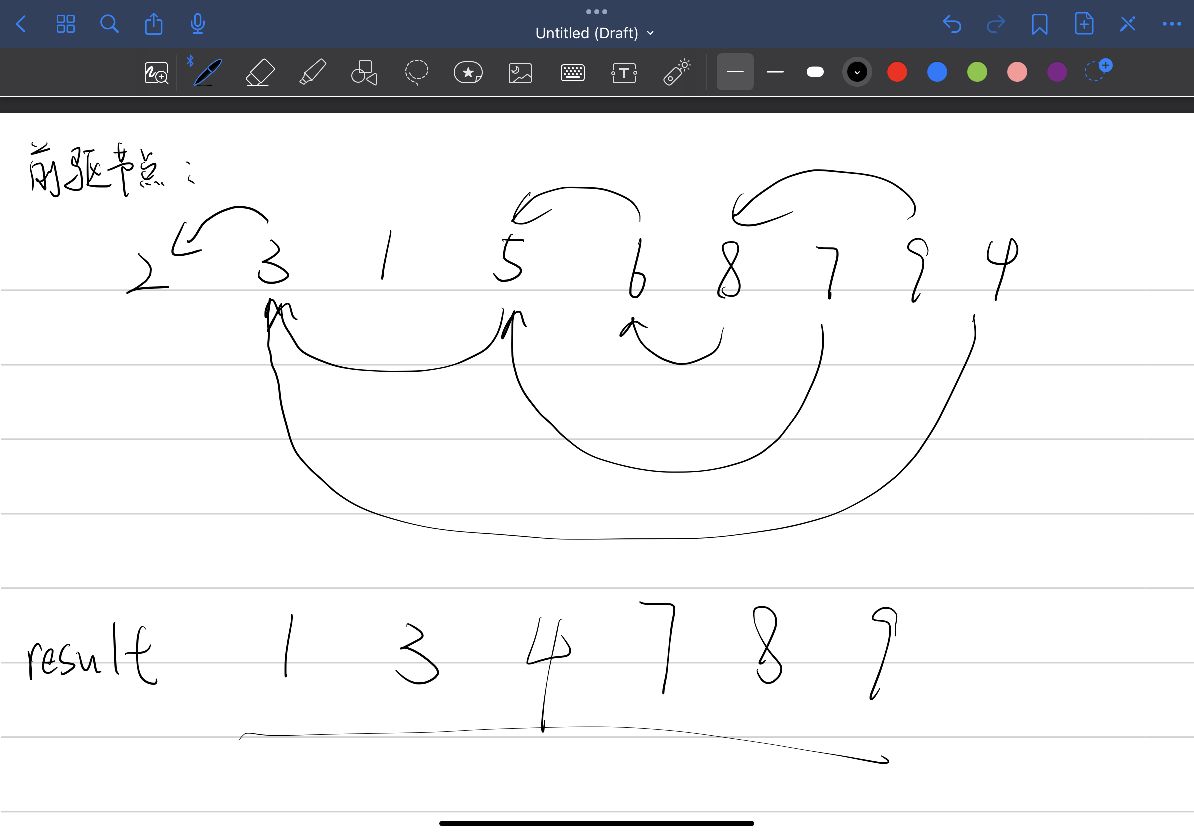 Untitled (Draft)
前驱节点:
2 3 1 5 6 8 7 9 4
result 1 3 4 7 8 9